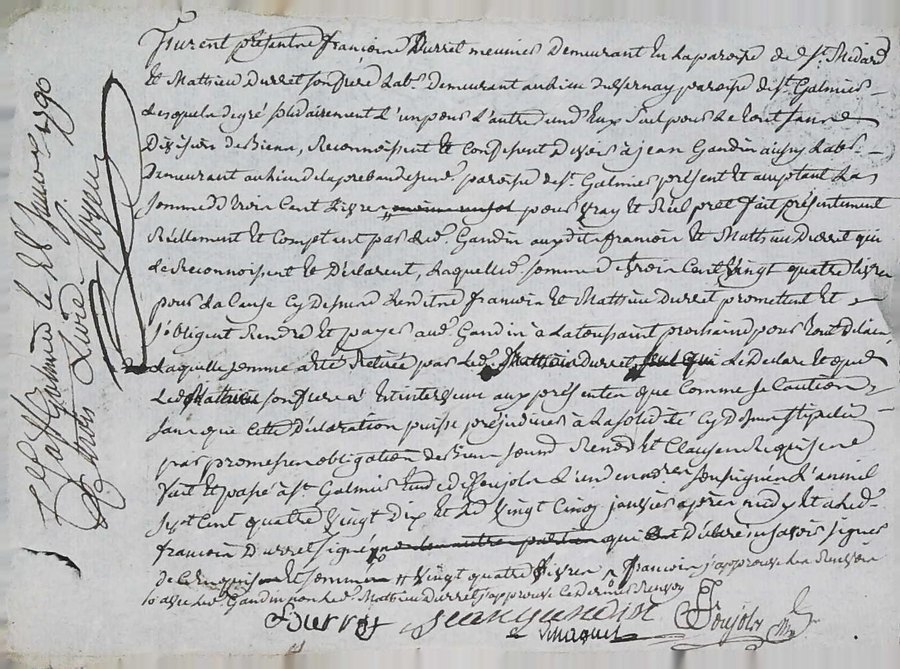 Furent présents françois Durret meunier Demeurant En la paroisse de St. Médard
Et Mathieu Durret son frere Labr. Demeurant au lieu du Vernay paroisse de St. Galmier
Lesquels de gré solidairement l'un pour l'autre un d'Eux seul pour le tout sans
Division de Biens, Reconnoissent Et Confessent Devoir à jean Gandin aussy Labr.
Demeurant au lieu de paroisse de St. Galmier présent Et acceptant La
somme de trois Cent Livres pour vray Et Réel pret fait présentement
Réellement Et Comptant par Led. Gandin auxdits françois Et Mathieu Durret qui
le Reconnoissent Et Déclarent, Laquelle somme de trois Cent Vingt quatre Livres
pour La Cause Cy Dessus Lesdits françois Et Mathieu Durret promettent Et
s'obligent Rendre Et payer aud. Gandin à La toussaint prochaine pour tout Délai
Laquelle somme a Eté Retirée par Led. Durret qui Le Declare Et que
Led. son frere n'Est intervenu aux présentes que Comme sa Caution
sans que Cette Déclaration puisse préjudicier à La solidité Cy Dessus stipulée
par promesses obligation de Biens Renon. Et Clauses Requises
fait Et passé à St. Galmier Etude de foujols L'un des nores. soussignés L'an mil
sept Cent quatre Vingt Dix Et Le Vingt Cinq janvier après midy Et a Led.
françois Durret signé qui Déclaré savoir signer
De Ce Enquis Et sommé Vingt quatre Livres françois j'approuve Les Renvois
avec Led. Gandin non Led. Mathieu Durret j'approuve Le Dernier Renvoy
Durret jean gandin foujols
Contrôlé à St Galmier le 28 Janvier 1790